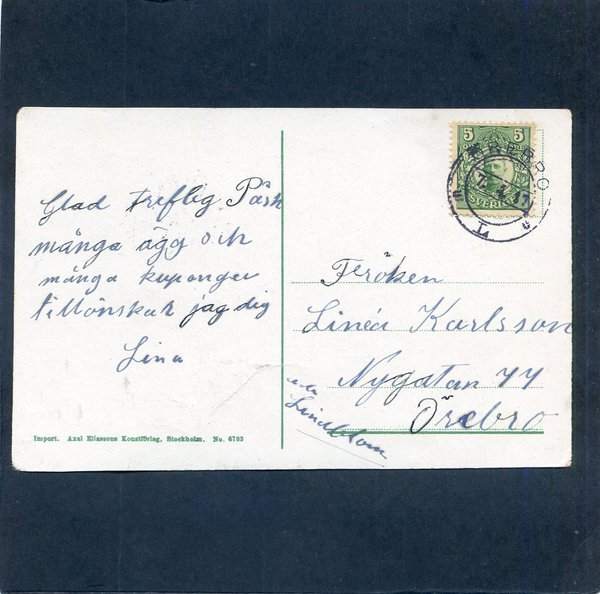 Glad treflig Påsk
många ägg och
många kuponger
tillönskar jag dig
Lina
Import. Axel Eliassons Konstförlag, Stockholm. No. 6783
5 5
SVERIGE
ÖREBRO
L
Fröken
Linéa Karlsson
Nygatan 44
Örebro
Lindblom